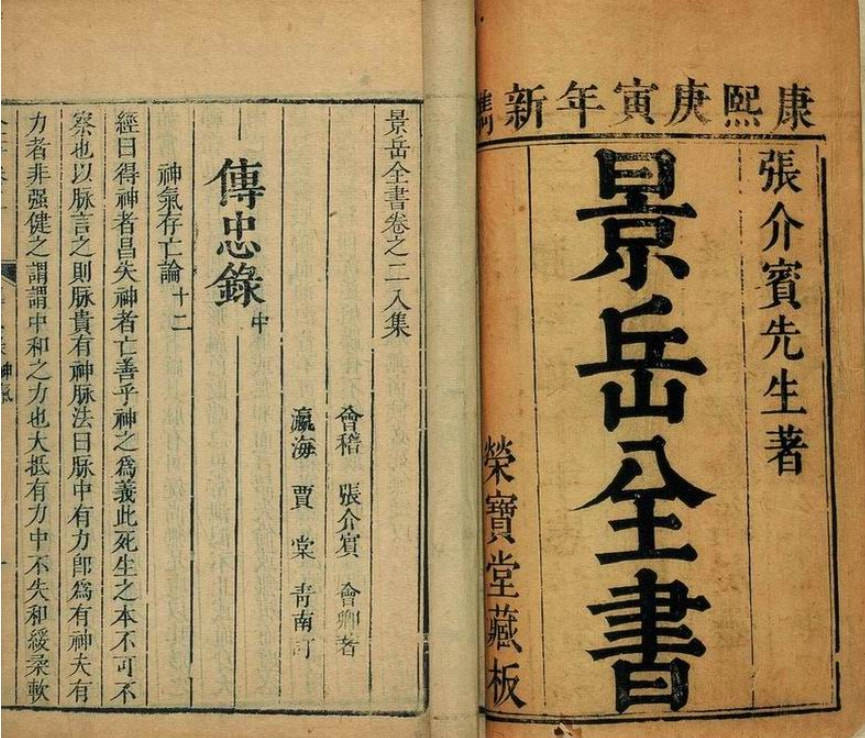 康熙庚寅年新鐫
張介賓先生著
景岳全書
榮寶堂藏板
景岳全書卷之二入集
會稽 張介賓 會卿著
瀛海 賈棠 青南訂
傳忠錄 中
神氣存亡論 十二
經曰得神者昌失神者亡善乎神之爲義此死生之本不可不
察也以脉言之則脉貴有神脉法曰脉中有力卽爲有神夫有
力者非强健之謂謂中和之力也大抵有力中不失和緩柔軟
神氣